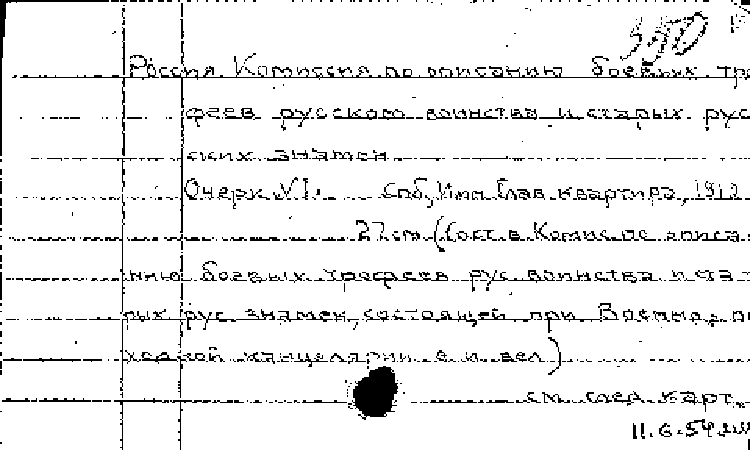 350
Россия. Комиссия по описанию боевых тро
феев русского воинства и старых рус
ских знамен.
Очерк №I. Спб, Имп. Глав. квартира, 1912
27 см (Сост. в Комис. по описа
нию боевых трофеев рус. воинства и
рус. знамен, состоящей при Военно-по
ходной канцелярии е. и. вел)
см. след. карт.
11.6.54